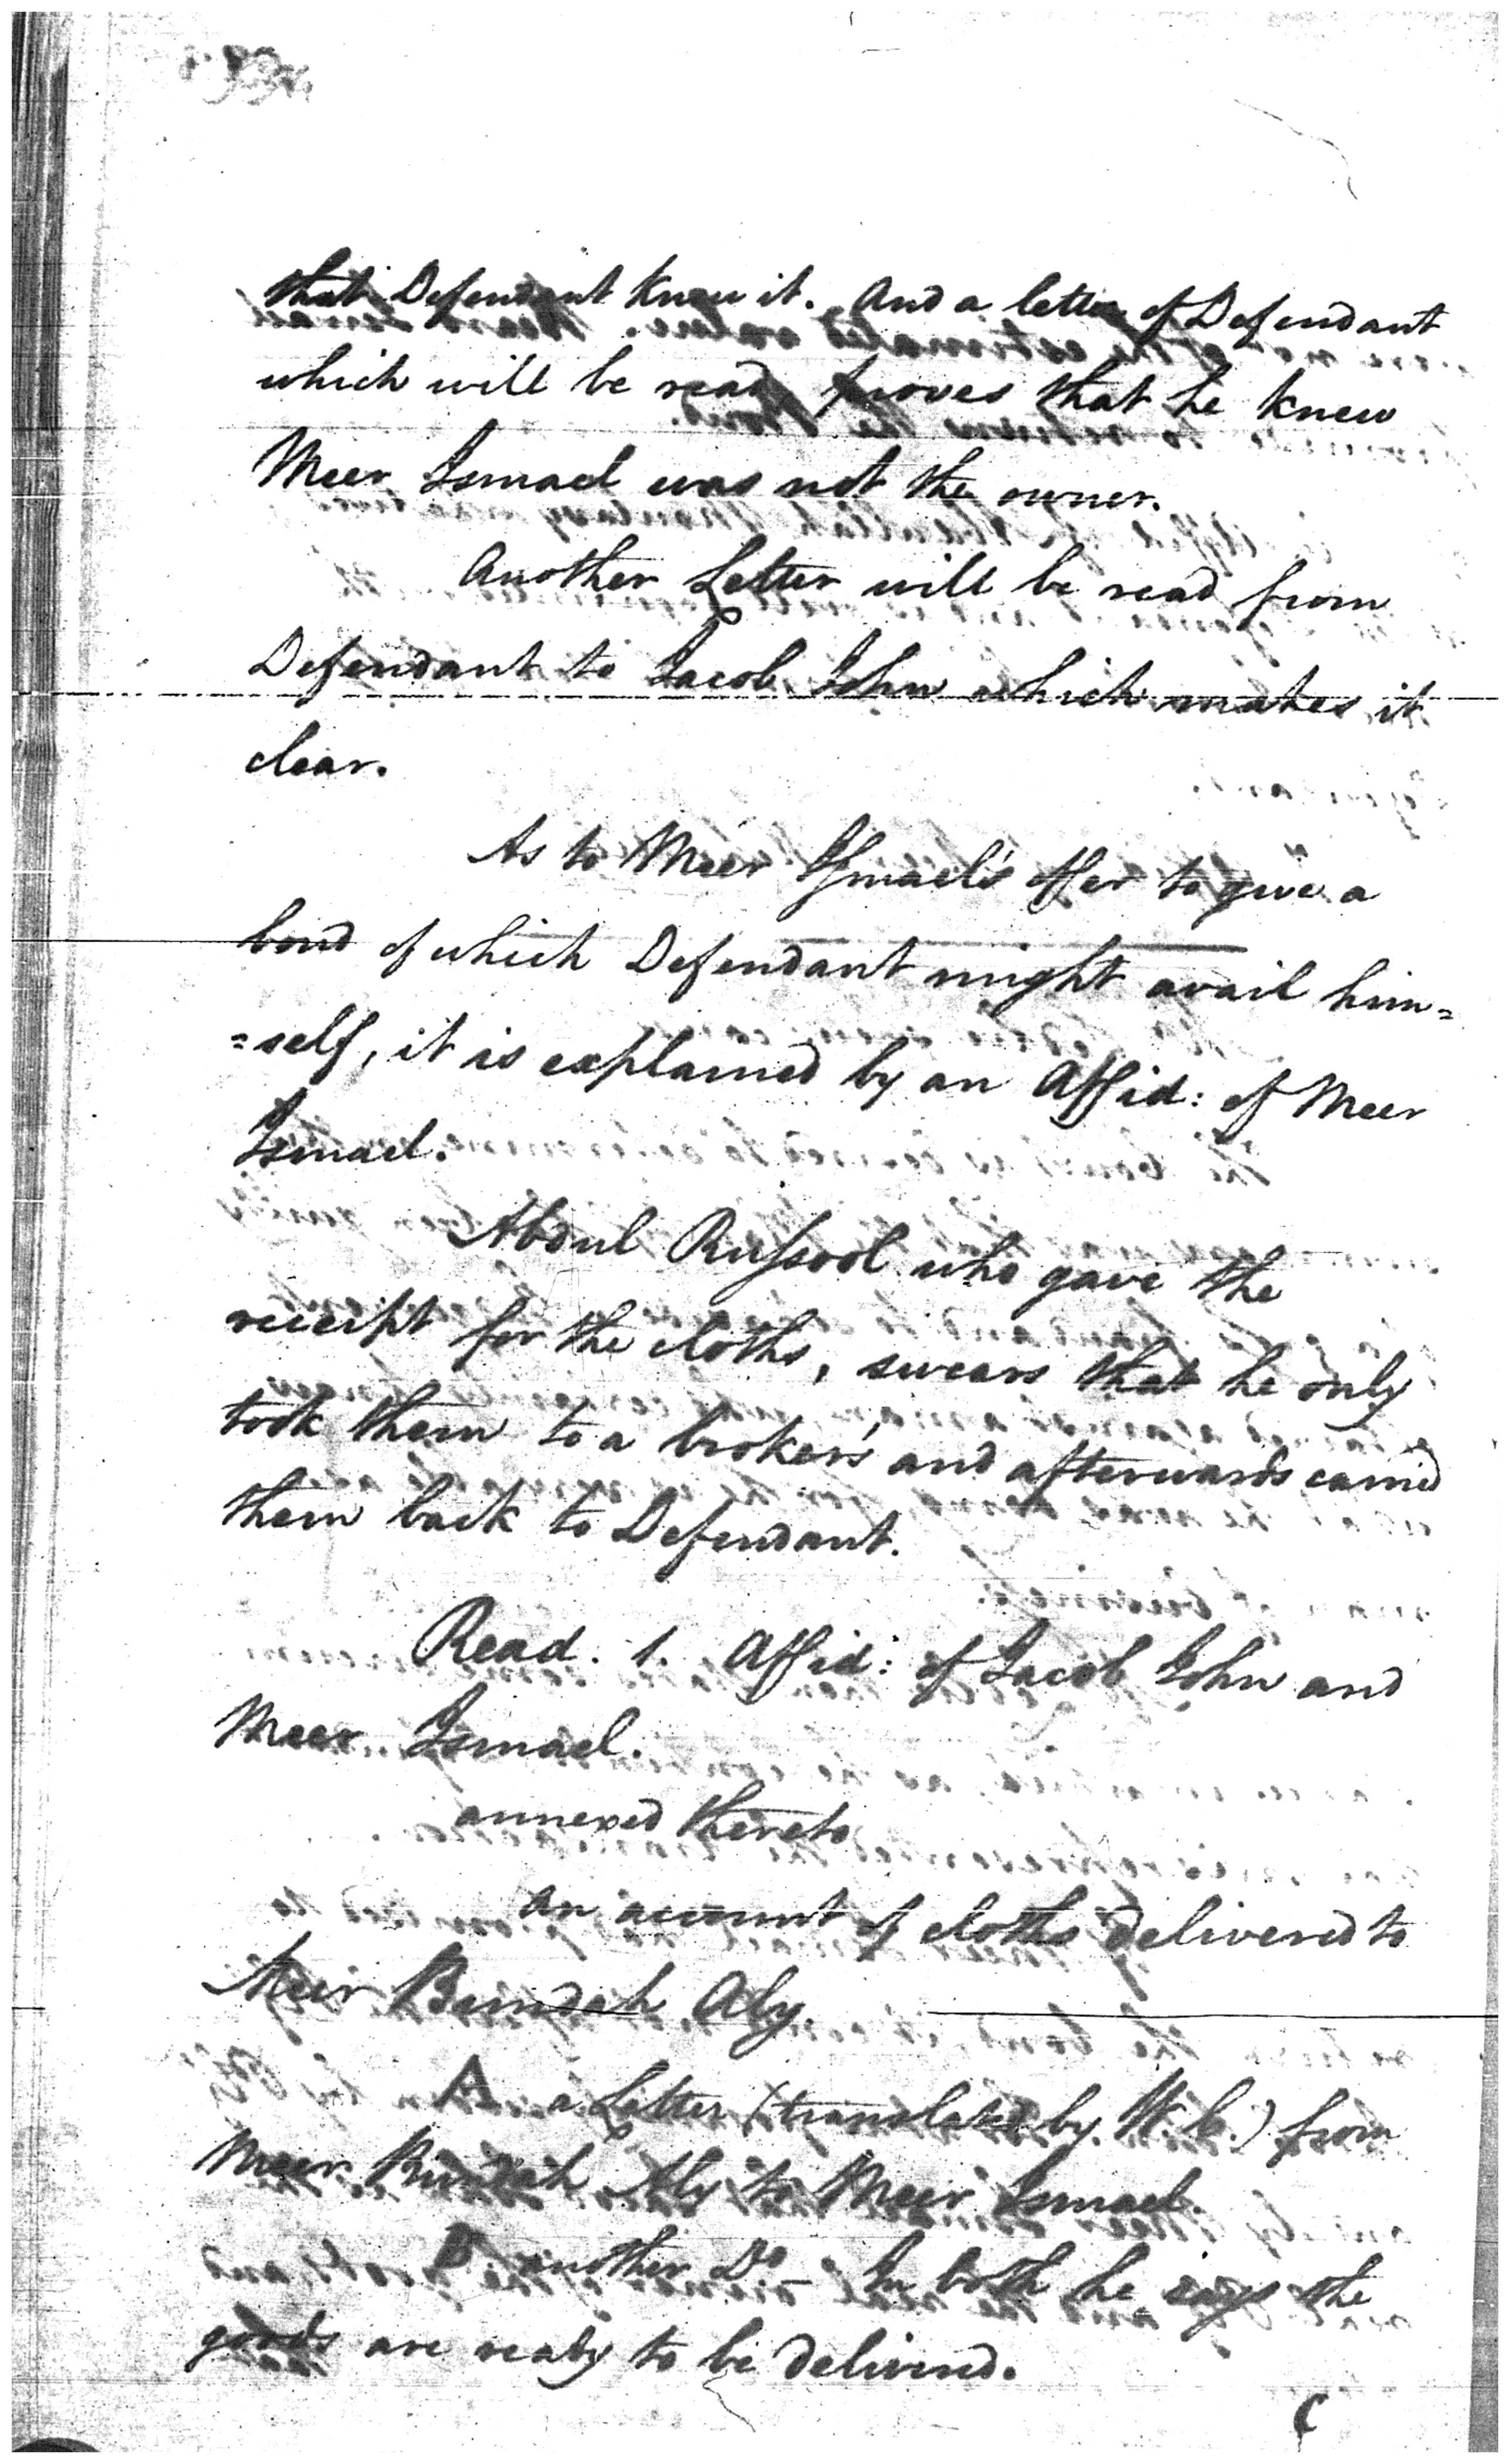 that Defendant knew it. And a letter of Defendant
which will be read proves that he knew
Meer Ismael was not the owner.
Another Letter will be read from
Defendant to Jacob John which makes it
clear.
As to Meer Ismael's offer to give a
bond of which Defendant might avail him=
=self, it is explained by an Affid: of Meer
Ismael.
Abdul Russool who gave the
receipt for the cloths, swears that he only
took them to a broker's and afterwards carried
them back to Defendant.
Read. 1. Affid: of Jacob John and
Meer Ismael.
annexed thereto
an account of cloths delivered to
Meer Bundah Aly.
A a Letter (translated by W. C.) from
Meer Bundah Aly to Meer Ismael.
B another Do In both he says the
goods are ready to be delivered.
C